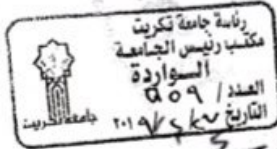 رئاسة جامعة تكريت
مكتب رئيس الجامعة
الـــواردة
العدد / ٥٥٩
التاريخ ٢٠١٩/٢/٢٧
جامعة تكريت